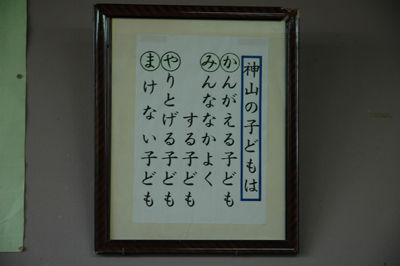 神山の子どもは
かんがえる子ども
みんななかよく
する子ども
やりとげる子ども
まけない子ども